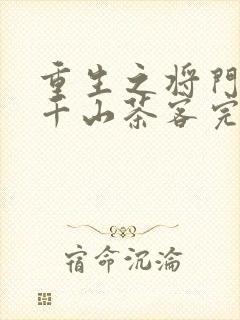 重生之将门
千山茶客完
宿命沉沦